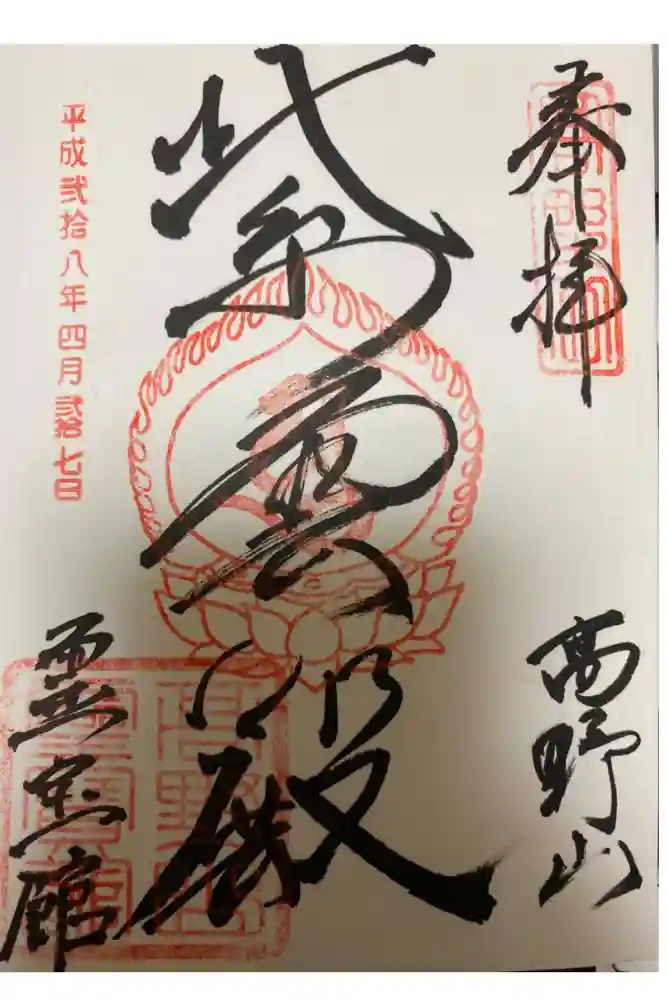 奉拝
高野山
紫雲殿
平成弐拾八年四月弐拾七日
霊宝館